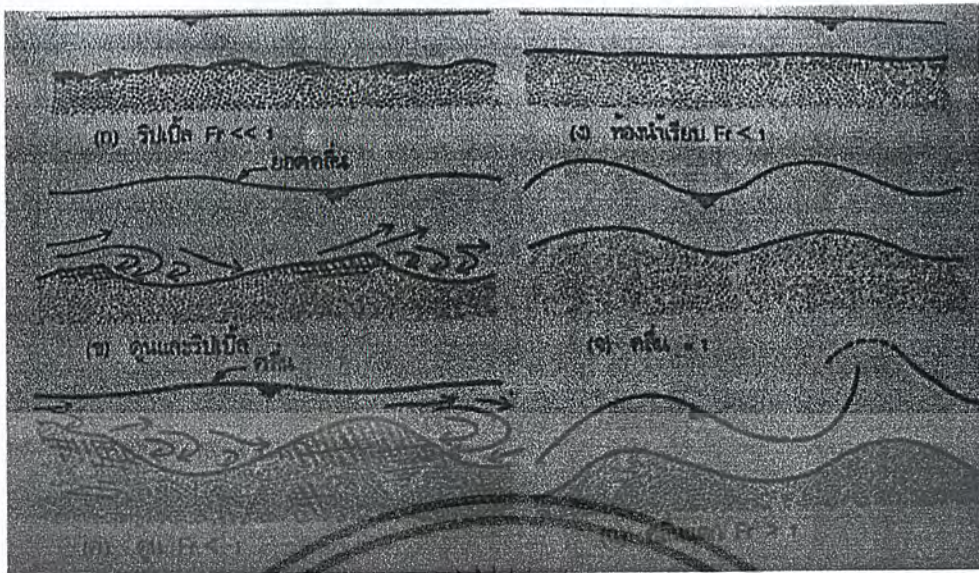 (ก) ริปเปิ้ล Fr << 1
(ง) ท้องน้ำเรียบ Fr < 1
ยอดคลื่น
(ข) ดูนและริปเปิ้ล
(จ) คลื่น = 1
คลื่น
(ค) ดูน Fr < 1
Fr > 1